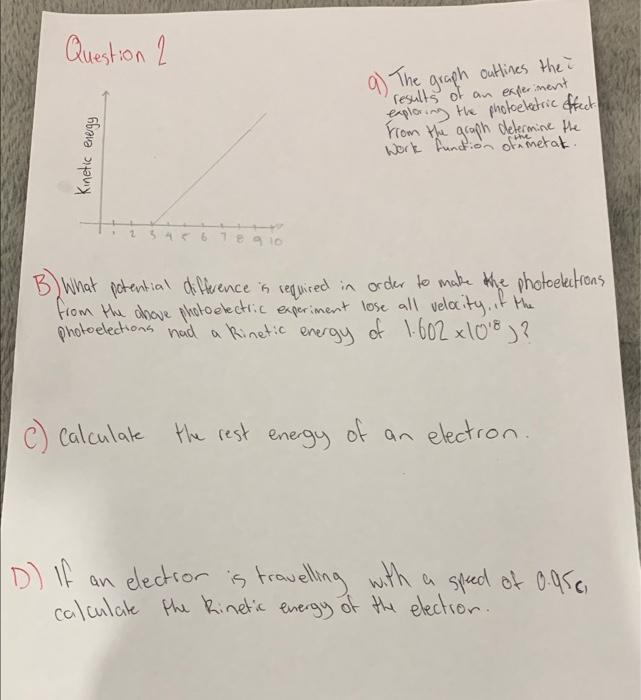 Question 2
a) The graph outlines the
results of an experiment
exploring the photoelectric effect.
From the graph determine the
work function of the metal.
Kinetic energy
1 2 3 4 5 6 7 8 9 10
B) What potential difference is required in order to make the photoelectrons
from the above photoelectric experiment lose all velocity, if the
photoelections had a kinetic energy of 1.602 x10⁻¹⁸ J?
C) Calculate the rest energy of an electron.
D) If an electron is travelling with a speed of 0.95c,
calculate the kinetic energy of the electron.